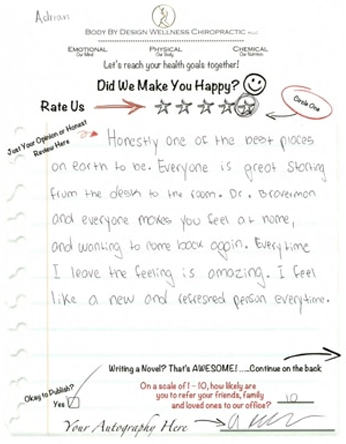 Adrian
BODY BY DESIGN WELLNESS CHIROPRACTIC PLLC
EMOTIONAL PHYSICAL CHEMICAL
Our Mind Our Body Our Nutrition
Let's reach your health goals together!
Did We Make You Happy?
Rate Us
Circle One
Just Your Opinion or Honest
Review Here
Honestly one of the best places
on earth to be. Everyone is great starting
from the desk to the room. Dr. Braverman
and everyone makes you feel at home,
and wanting to come back again. Everytime
I leave the feeling is amazing. I feel
like a new and refreshed person everytime.
Writing a Novel? That's AWESOME!....Continue on the back
Okay to Publish?
Yes
On a scale of 1 - 10, how likely are
you to refer your friends, family
and loved ones to our office? 10
Your Autography Here